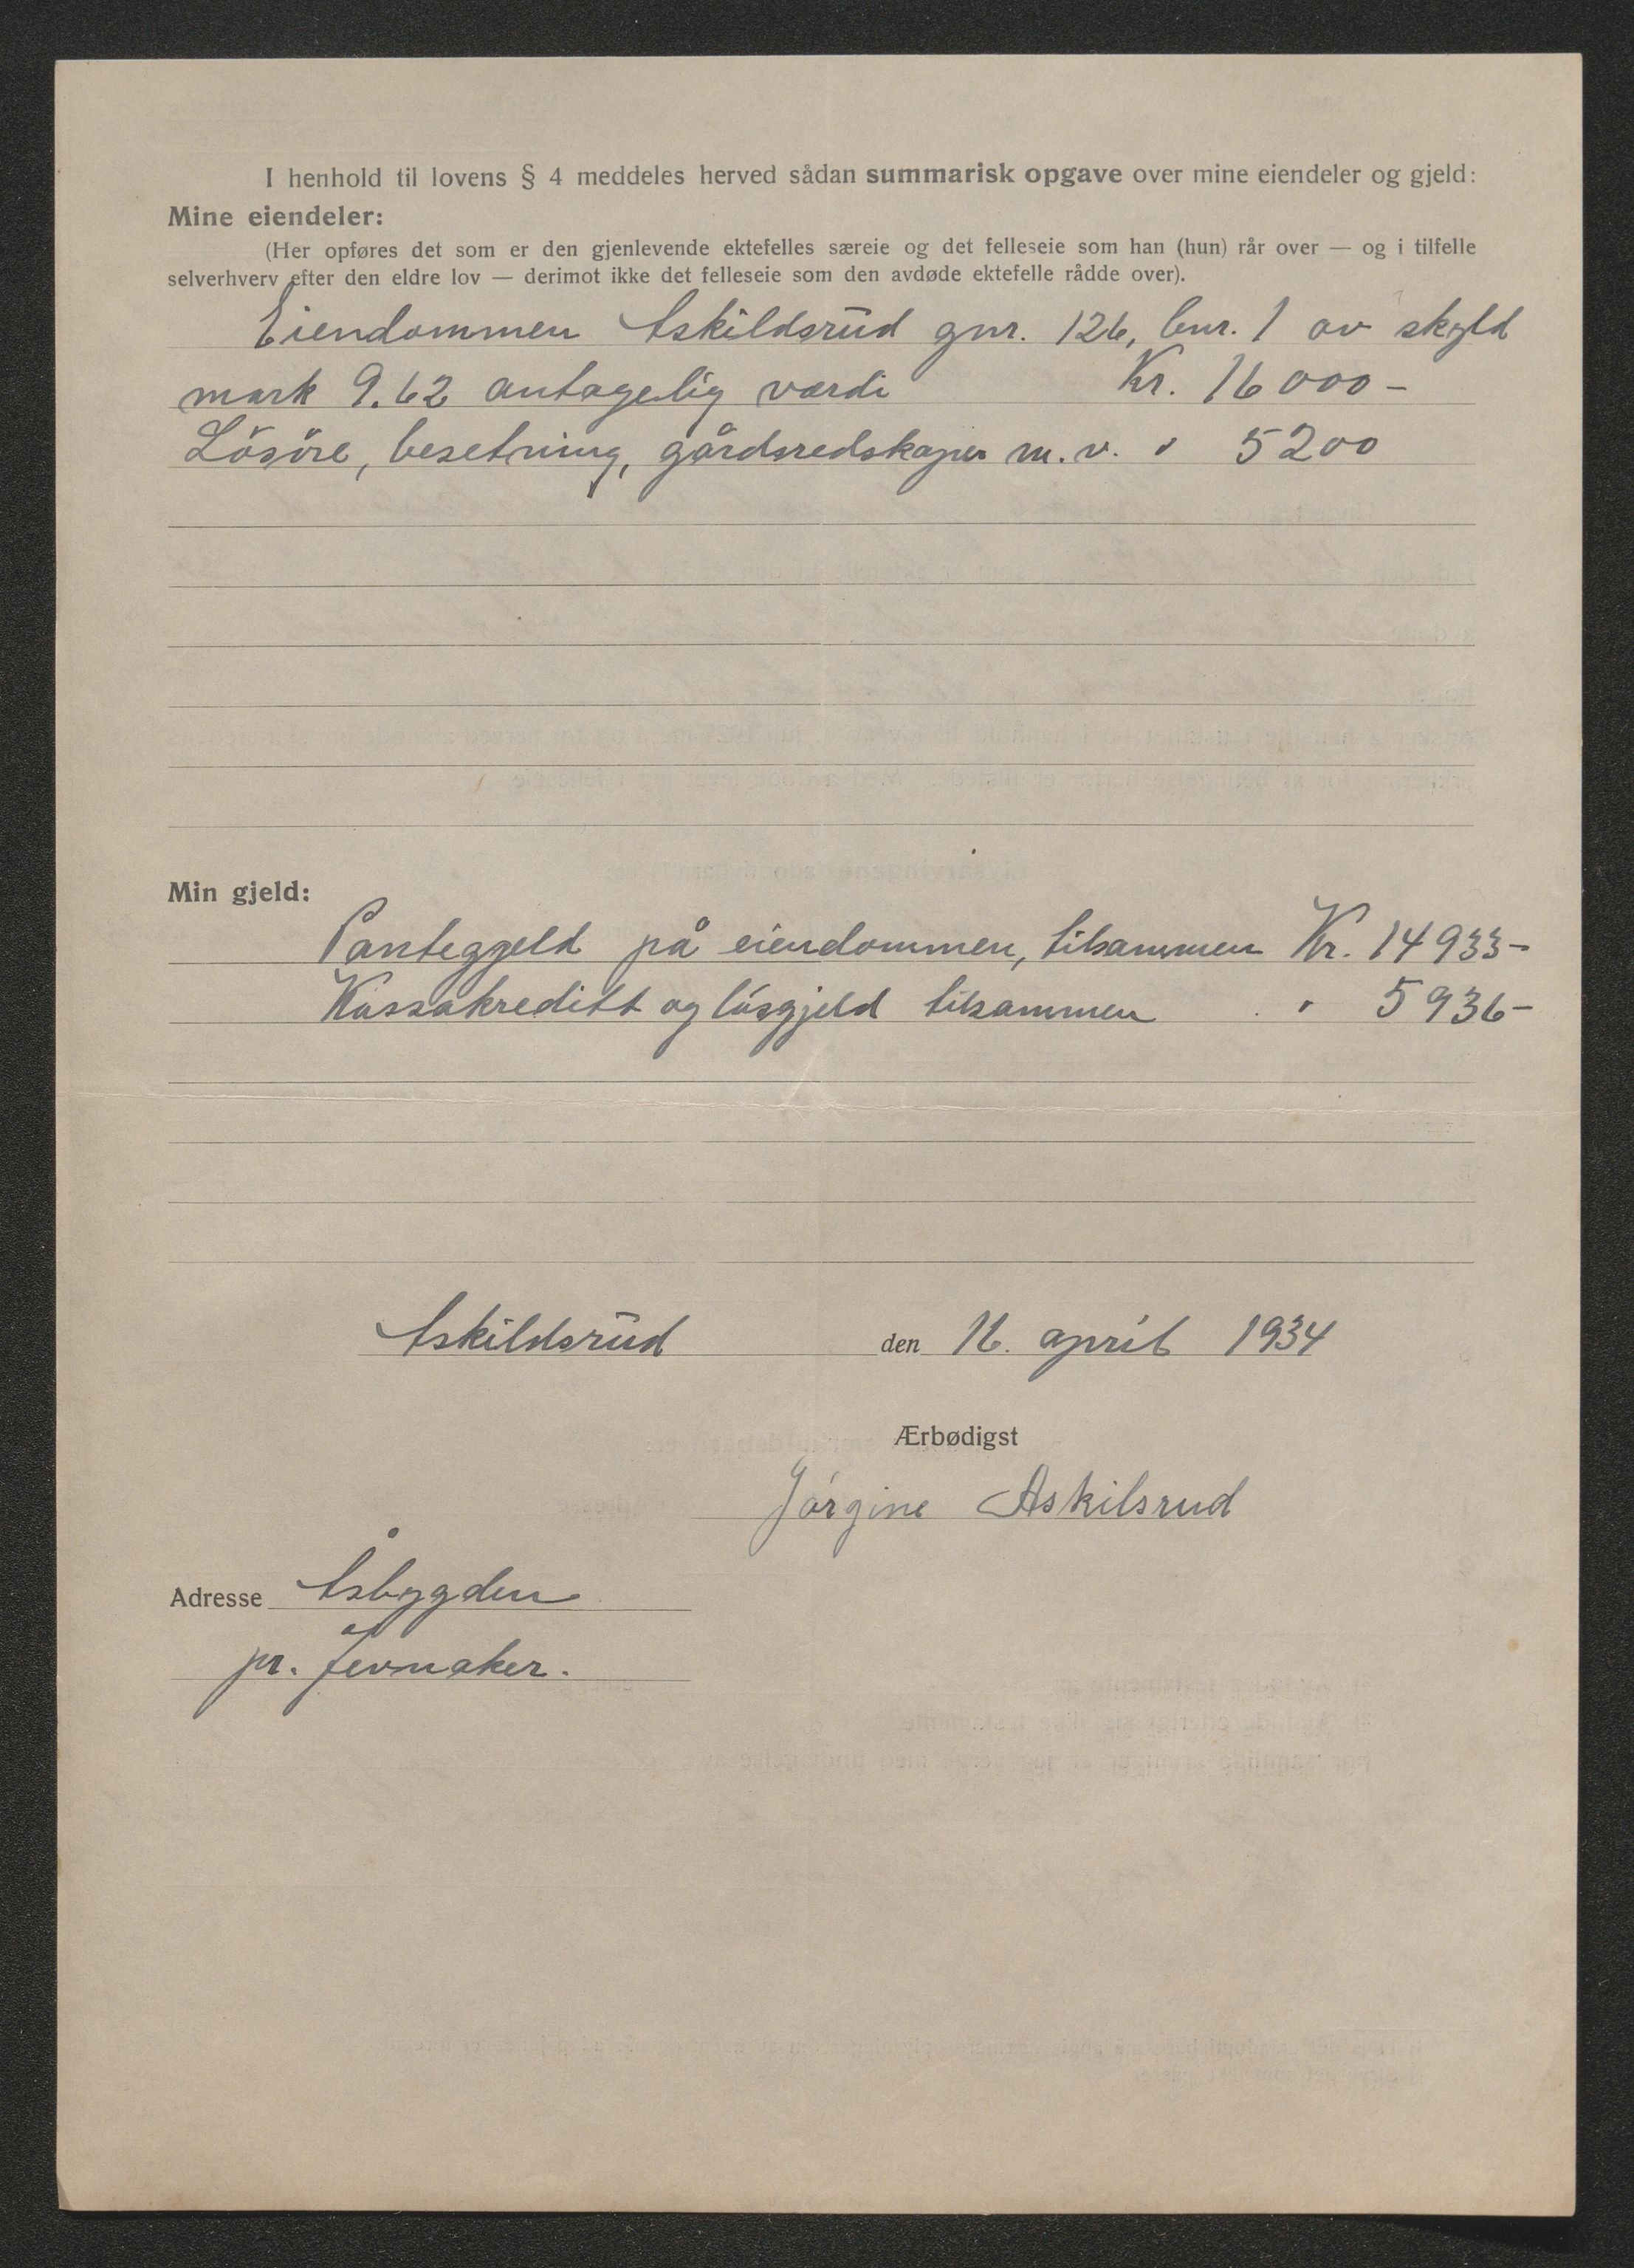 I henhold til lovens § 4 meddeles herved sådan summarisk opgave over mine eiendeler og gjeld:
Mine eiendeler:
(Her opføres det som er den gjenlevende ektefelles særeie og det felleseie som han (hun) rår over — og i tilfelle
selverhverv efter den eldre lov — derimot ikke det felleseie som den avdøde ektefelle rådde over).
Eiendommen Askildsrud gnr. 126, bnr. 1 av skyld
mark 9.62 antagelig værdi Kr. 16000-
Lösöre, besetning, gårdsredskaper m.v. " 5200
Min gjeld:
Pantegjeld på eiendommen, tilsammen Kr. 14933-
Kassakreditt og lösgjeld tilsammen " 5936-
Askildsrud den 16. april 1934
Ærbødigst
Jørgine Askilsrud
Adresse Åsbygden
pr. Jevnaker.